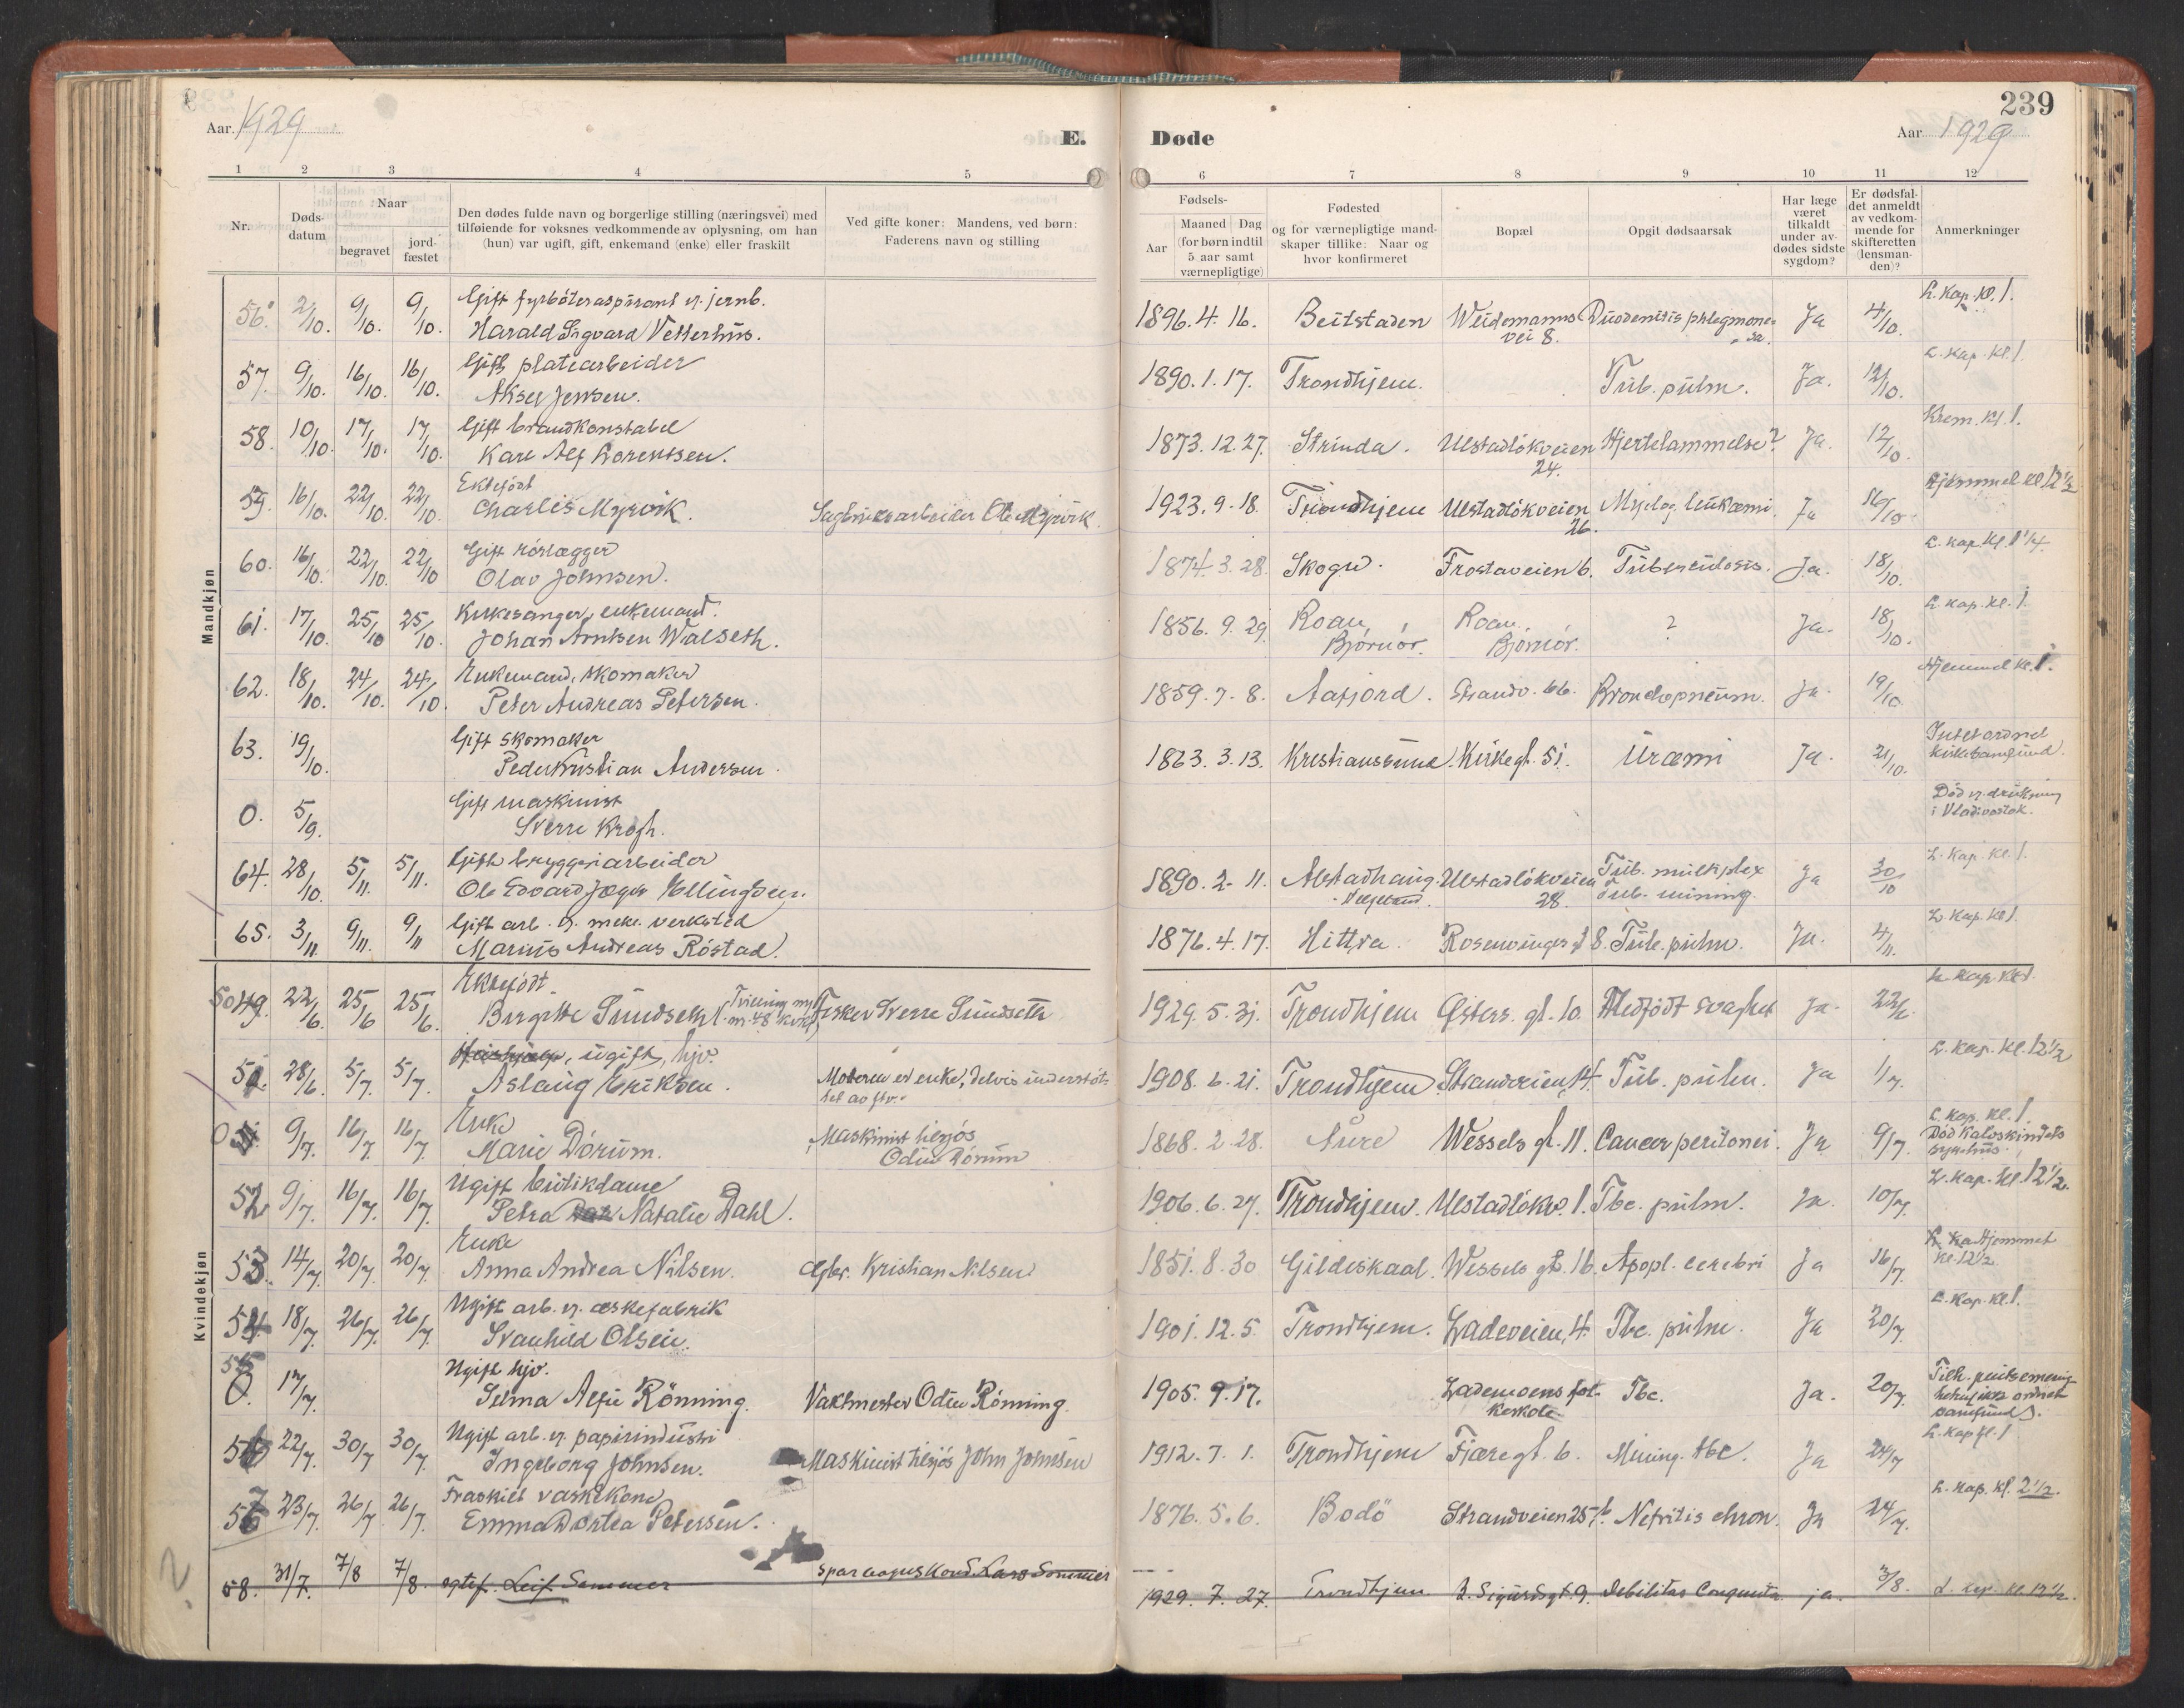 239
Aar 1929
E.
Døde
Aar 1929
1 2 3 4 5 6 7 8 9 10 11 12
Nr.
Døds-
datum
Naar
begravet
jord-
fæstet
Den dødes fulde navn og borgerlige stilling (næringsvei) med
tilføiende for voksnes vedkommende av oplysning, om han
(hun) var ugift, gift, enkemand (enke) eller fraskilt
Ved gifte koner: Mandens, ved børn:
Faderens navn og stilling
Fødsels-
Aar
Maaned Dag
(for børn indtil
5 aar samt
værnepligtige)
Fødested
og for værnepligtige mand-
skaper tillike: Naar og
hvor konfirmeret
Bopæl
Opgit dødsaarsak
Har læge
været
tilkaldt
under av-
dødes sidste
sygdom?
Er dødsfal-
det anmeldt
av vedkom-
mende for
skifteretten
(lensman-
den)?
Anmerkninger
Mandkjøn
56. 2/10. 9/10. 9/10. Gift fyrbøteraspirant v. jernb.
Harald Sigvard Vetterhus.
1896. 4. 16. Beitstaden Weidemanns
vei 8. Duodenitis phlegmone-
sa. Ja 4/10. L. kap. kl. 1.
57. 9/10. 16/10. 16/10. Gift platearbeider
Aksel Jensen.
1890. 1. 17. Trondhjem. Tub. pulm. Ja. 12/10. L. kap. kl. 1.
58. 10/10. 17/10. 17/10. Gift brandkonstabel
Karl Alf Lorentsen.
1873. 12. 27. Strinda. Ulstadløkveien
24. Hjertelammelse? Ja. 12/10. Krem. kl. 1.
59. 16/10. 22/10. 22/10. Ektefødt
Charlis Myrvik. Sagbruksarbeider Ole Myrvik.
1923. 9. 18. Trondhjem Ulstadløkveien
26. Myelog. leukæmi. Ja 16/10 Hjemmet kl 12 1/2
60. 16/10. 22/10. 22/10 Gift rørlægger
Olav Johnsen.
1874. 3. 28. Skogn. Frostaveien 6. Tuberculosis. Ja. 18/10. L. kap. kl. 1 1/4.
61. 17/10. 25/10 25/10. Kirkesanger, enkemand.
Johan Arntsen Walseth.
1856. 9. 29. Roan,
Bjørnør. Roan,
Bjørnør. ? Ja. 18/10. L. kap. kl. 1.
62. 18/10. 24/10. 24/10. Enkemand, skomaker
Peter Andreas Petersen.
1859. 7. 8. Aafjord. Strandv. 66. Bronchopneum. Ja. 19/10 Hjemmet kl. 1.
63. 19/10. Gift skomaker
Peder Kristian Andersen.
1863. 3. 13. Kristiansund. Kirkegt. 51. Uræmi Ja. 21/10. Intet ordnet
kirkesamfund.
0. 5/9. Gift maskinist
Sverre Krogh.
Død v. drukning
i Vladivostok.
64. 28/10. 5/11. 5/11. Gift bryggeriarbeider
Ole Edvard Jæger Ellingsen.
1890. 2. 11. Alstadhaug.
Helgeland. Ulstadløkveien
28. Tub. multiplex
Tub. mining. Ja 30/10 L. kap. kl. 1.
65. 3/11. 9/11. 9/11 Gift arb. v. mek. verksted
Marius Andreas Røstad.
1876. 4. 17. Hittra. Rosenvinges gt 8. Tub. pulm. Ja. 4/11. L. kap. kl 1.
Kvindekjøn
50 49. 22/6. 25/6 25/6. Ektefødt
Birgitte Sundseth Fisker Sverre Sundseth
1929. 5. 31. Trondhjem Østers. gt. 10. Medfødt svaghet Ja. 22/6. L. kap. kl 1.
51. 28/6. 5/7. 5/7. ugift, hjv.
Aslaug Eriksen. Moderen er enke, delvis understøt-
tet av ftv.
1908. 6. 21. Trondhjem. Strandveien 14. Tub. pulm. Ja 1/7. L. kap. kl. 12 1/2
0 9/7. 16/7. 16/7. Enke
Marie Dørum. Maskinist tilsjøs
Odin Dørum
1868. 2. 28. Aure Wessels gt. 11. Cancer peritonei. Ja 9/7. L. kap. kl. 1.
Død Kalvskindets
sykehus.
52 9/7. 16/7. 16/7. Ugift butikdame
Petra Natalie Dahl.
1906. 6. 27. Trondhjem. Ulstadløkv. 1. Tbc. pulm. Ja. 10/7. L. kap. kl. 12 1/2.
53. 14/7. 20/7. 20/7. Enke
Anna Andrea Nilsen. Kristian Nilsen
1851. 8. 30 Gildeskaal. Wessels gt. 16. Apopl. cerebri Ja 16/7. Hjemmet
kl. 12 1/2
54. 18/7. 26/7. 26/7. Ugift arb. v. æskefabrik
Svanhild Olsen.
1901. 12. 5. Trondhjem. Ladeveien 4. Tbc. pulm. Ja 20/7. L. kap. kl. 1.
55 0. 17/7. Ugift hjv.
Selma Alfie Rønning. Vaktmester Odin Rønning.
1905. 9. 17. Lademoens fol-
keskole Tbc. Ja. 20/7. Tilh. pinsemenig-
heten (ikke ordnet
samfund).
56 22/7. 30/7 30/7. Ugift arb. v. papirindustri
Ingeborg Johnsen. Maskinist tilsjøs John Johnsen
1912. 7. 1. Trondhjem Fjæregt. 6. Mining. tbc. Ja 24/7 L. kap. kl. 1
57 23/7. 26/7 26/7. Fraskilt vaskekone
Emma Dortea Petersen.
1876. 5. 6. Bodø Strandveien 25 b. Nefritis chron. Ja 24/7. L. kap. kl. 2 1/2.
58. 31/7. 7/8 7/8. egtef. Leif Sommer Sporvognskond. Lars Sommer
1929. 7. 27. Trondhjem. Sigurdsgt. 9. Debilitas Congenita. ja. 3/8. L. kap. kl. 12 1/2.